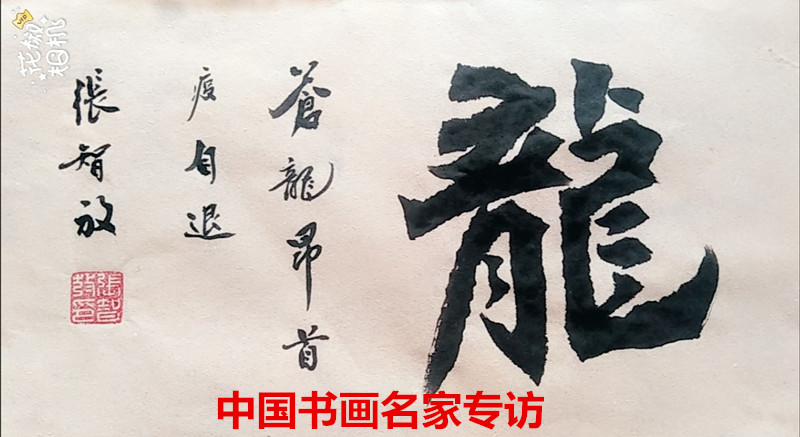 龍
蒼龍昂首
疫自退
張智放
張智放印
中国书画名家专访
花椒相机